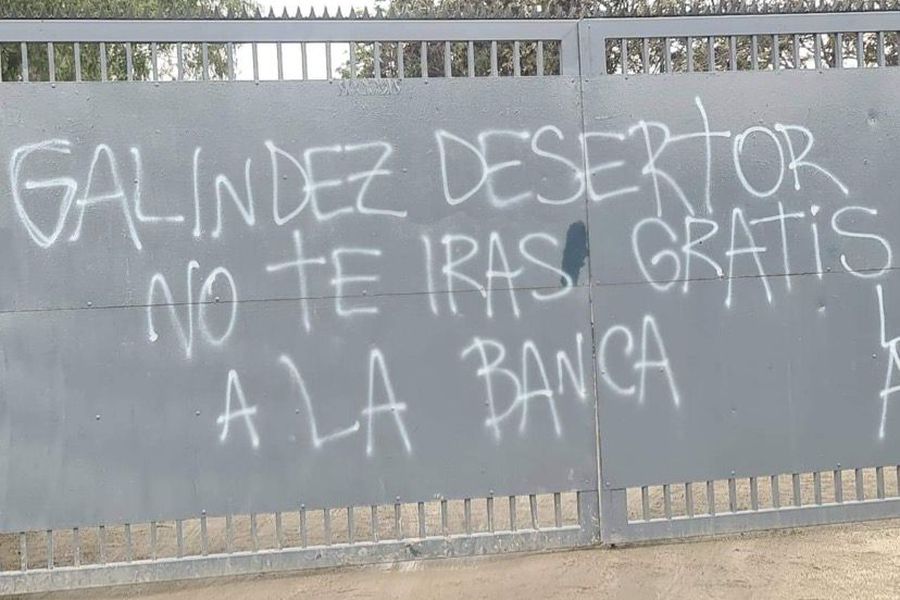 GALINDEZ DESERTOR
NO TE IRAS GRATiS
A LA BANCA
L
A